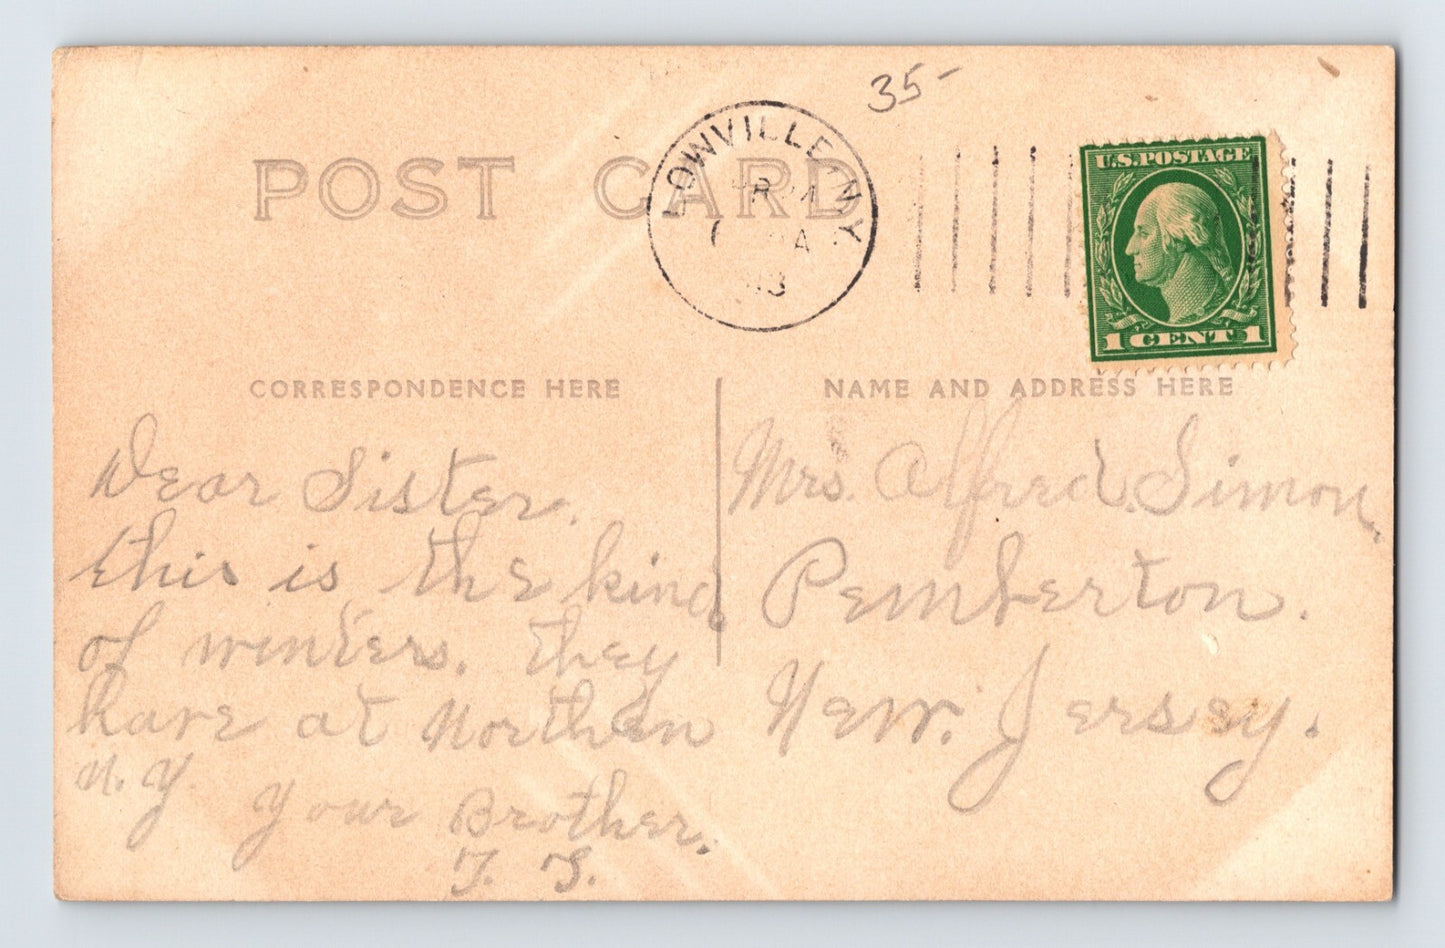 35-
POST CARD
LOWVILLE, N.Y.
U.S. POSTAGE
1 CENT 1
CORRESPONDENCE HERE
NAME AND ADDRESS HERE
Dear Sister.
this is the kind
of winters. they
have at Northen
N. Y
Your Brother.
Mrs. Alfred. Simon,
Pemberton.
New. Jersey.